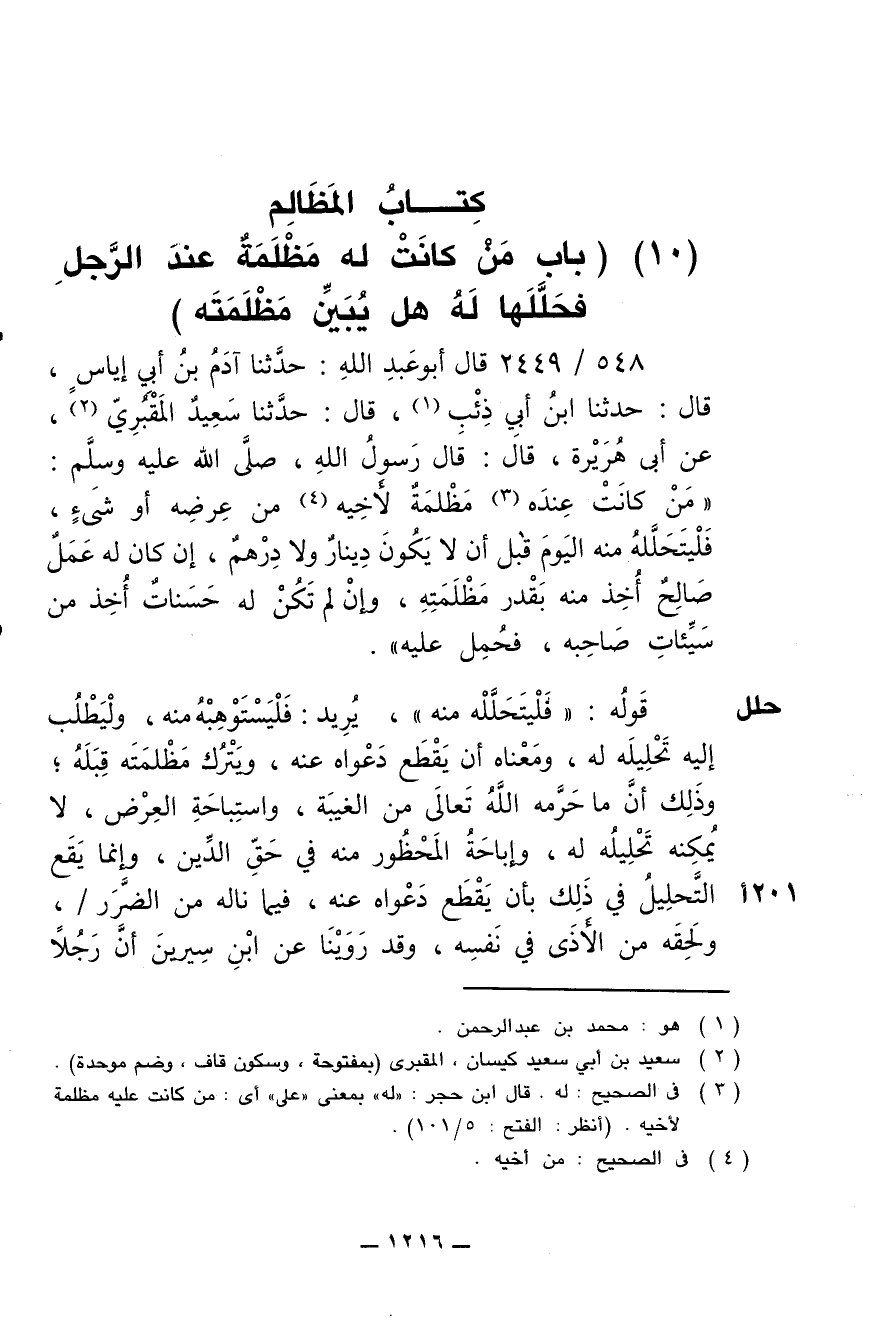 كِتـــــابُ المَظَالِم
(١٠) ( باب مَنْ كانَتْ له مَظْلَمَةٌ عندَ الرَّجلِ
فحَلَّلَها لَهُ هل يُبَيِّنُ مَظْلَمَتَه )
٥٤٨ / ٢٤٤٩ قال أبوعَبدِ اللهِ : حدَّثنا آدَمُ بنُ أبي إياسٍ ،
قال : حدثنا ابنُ أبي ذِئْبٍ (١) ، قال : حدَّثنا سَعِيدٌ المَقْبُرِيّ (٢) ،
عن أبى هُرَيْرة ، قال : قال رَسولُ اللهِ ، صلَّى الله عليه وسلَّم :
« مَنْ كانَتْ عِندَه (٣) مَظْلمَةٌ لأَخيه (٤) من عِرضِه أو شَىءٍ ،
فَلْيتَحلَّلهُ منه اليَومَ قَبل أن لا يَكُونَ دِينارٌ ولا دِرْهمٌ ، إن كان له عَمَلٌ
صَالِحٌ أُخِذ منه بَقْدر مَظْلَمَتِهِ ، وإنْ لم تَكُنْ له حَسَناتٌ أُخِذ من
سَيِّئاتِ صَاحِبه ، فحُمِل عليه» .
حلل قَولُه : « فَلْيتَحَلَّلْه منه » ، يُرِيد : فَلْيَسْتَوْهِبْهُ منه ، ولْيَطْلُب
إليه تَحْلِيلَه له ، ومَعْناه أن يَقْطَع دَعْواه عنه ، ويَتْرُك مَظْلمَتَه قِبَلَهُ ؛
وذَلِك أنَّ ما حَرَّمه اللَّهُ تَعالَى من الغيبَة ، واستِباحَةِ العِرْض ، لا
يُمكِنه تَحْلِيلُه له ، وإباحَةُ المَحْظُور منه في حَقِّ الدِّين ، وإنما يَقَع
٢٠١أ التَّحلِيلُ في ذَلِك بأن يَقْطَع دَعْواه عنه ، فيما ناله من الضَّرَر / ،
ولَحِقَه من الأَذَى في نَفسِه ، وقد رَوَيْنَا عن ابْنِ سِيرينَ أنَّ رَجُلًا
(١) هو : محمد بن عبدالرحمن .
(٢) سعيد بن أبي سعيد كيسان ، المقبرى (بمفتوحة ، وسكون قاف ، وضم موحدة) .
(٣) فى الصحيح : له . قال ابن حجر : «له» بمعنى «على» أى : من كانت عليه مظلمة
لأخيه . (أنظر : الفتح : ١٠١/٥) .
(٤) فى الصحيح : من أخيه .
ــ ١٢١٦ ــ